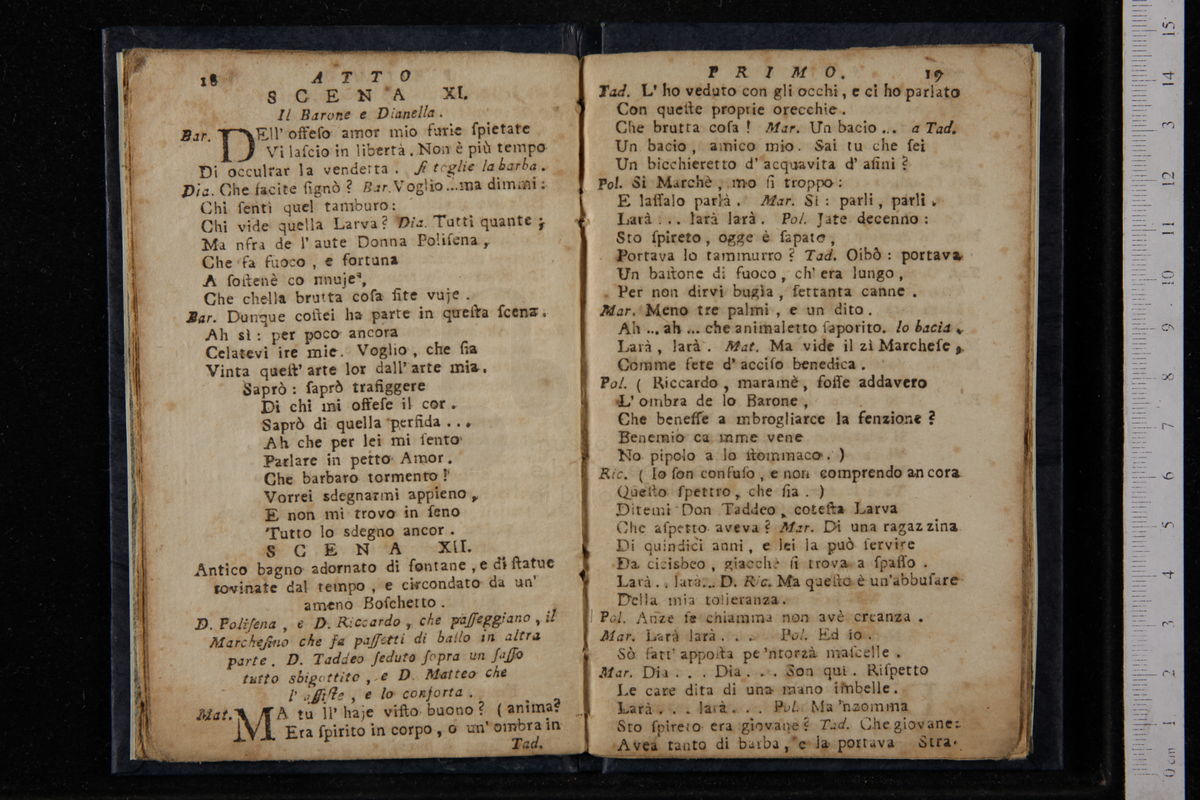 18 ATTO
SCENA XI.
Il Barone e Dianella.
Bar. DEll' offeſo amor mio furie ſpietate
Vi laſcio in libertà. Non è più tempo
Di occultar la vendetta. ſi toglie la barba.
Dia. Che facite ſignò? Bar. Voglio...ma dimmi:
Chi ſentì quel tamburo:
Chi vide quella Larva? Dia. Tutti quante;
Ma nfra de l' aute Donna Poliſena,
Che fa fuoco, e fortuna
A ſoſtenè co nnuje,
Che chella brutta coſa ſite vuje.
Bar. Dunque coſtei ha parte in queſta ſcena.
Ah sì: per poco ancora
Celatevi ire mie. Voglio, che ſia
Vinta queſt' arte lor dall' arte mia.
Saprò: ſaprò trafiggere
Di chi mi offeſe il cor.
Saprò di quella perfida...
Ah che per lei mi ſento
Parlare in petto Amor.
Che barbaro tormento!
Vorrei sdegnarmi appieno,
E non mi trovo in ſeno
Tutto lo sdegno ancor.
SCENA XII.
Antico bagno adornato di fontane, e di ſtatue
rovinate dal tempo, e circondato da un'
ameno Boſchetto.
D. Poliſena, e D. Riccardo, che paſſeggiano, il
Marcheſino che fa paſſetti di ballo in altra
parte. D. Taddeo ſeduto ſopra un ſaſſo
tutto sbigottito, e D. Matteo che
l' aſſiſte, e lo conforta.
Mat. MA tu ll' haje viſto buono? (anima?
Era ſpirito in corpo, o un' ombra in
Tad.
PRIMO. 19
Tad. L' ho veduto con gli occhi, e ci ho parlato
Con queſte proprie orecchie.
Che brutta coſa! Mar. Un bacio... a Tad.
Un bacio, amico mio. Sai tu che ſei
Un bicchieretto d' acquavita d' aſini?
Pol. Si Marchè, mo ſi troppo:
E laſſalo parlà. Mar. Si: parli, parli.
Larà... larà larà. Pol. Jate decenno:
Sto ſpireto, ogge è ſapato,
Portava lo tammurro? Tad. Oibò: portava
Un baſtone di fuoco, ch' era lungo,
Per non dirvi bugìa, ſettanta canne.
Mar. Meno tre palmi, e un dito.
Ah... ah... che animaletto ſaporito. lo bacia.
Larà, larà. Mat. Ma vide il zì Marcheſe,
Comme ſete d' acciſo benedica.
Pol. (Riccardo, maramè, foſſe addavero
L' ombra de lo Barone,
Che beneſſe a mbrogliarce la fenzione?
Benemio ca mme vene
No pipolo a lo ſtommaco.)
Ric. (Io ſon confuſo, e non comprendo ancora
Queſto ſpettro, che ſia.)
Ditemi Don Taddeo, coteſta Larva
Che aſpetto aveva? Mar. Di una ragazzina
Di quindici anni, e lei la può ſervire
Da cicisbeo, giacchè ſi trova a ſpaſſo.
Larà.. larà... D. Ric. Ma queſto è un'abbuſare
Della mia tolleranza.
Pol. Anze ſe chiamma non avè creanza.
Mar. Larà larà... Pol. Ed io.
Sò fatt' appoſta pe 'ntorzà maſcelle.
Mar. Dia... Dia... Son qui. Riſpetto
Le care dita di una mano imbelle.
Larà... larà... Pol. Ma 'nzomma
Sto ſpireto era giovane? Tad. Che giovane:
Avea tanto di barba, e la portava Stra-
0 cm 1 2 3 4 5 6 7 8 9 10 11 12 13 14 15